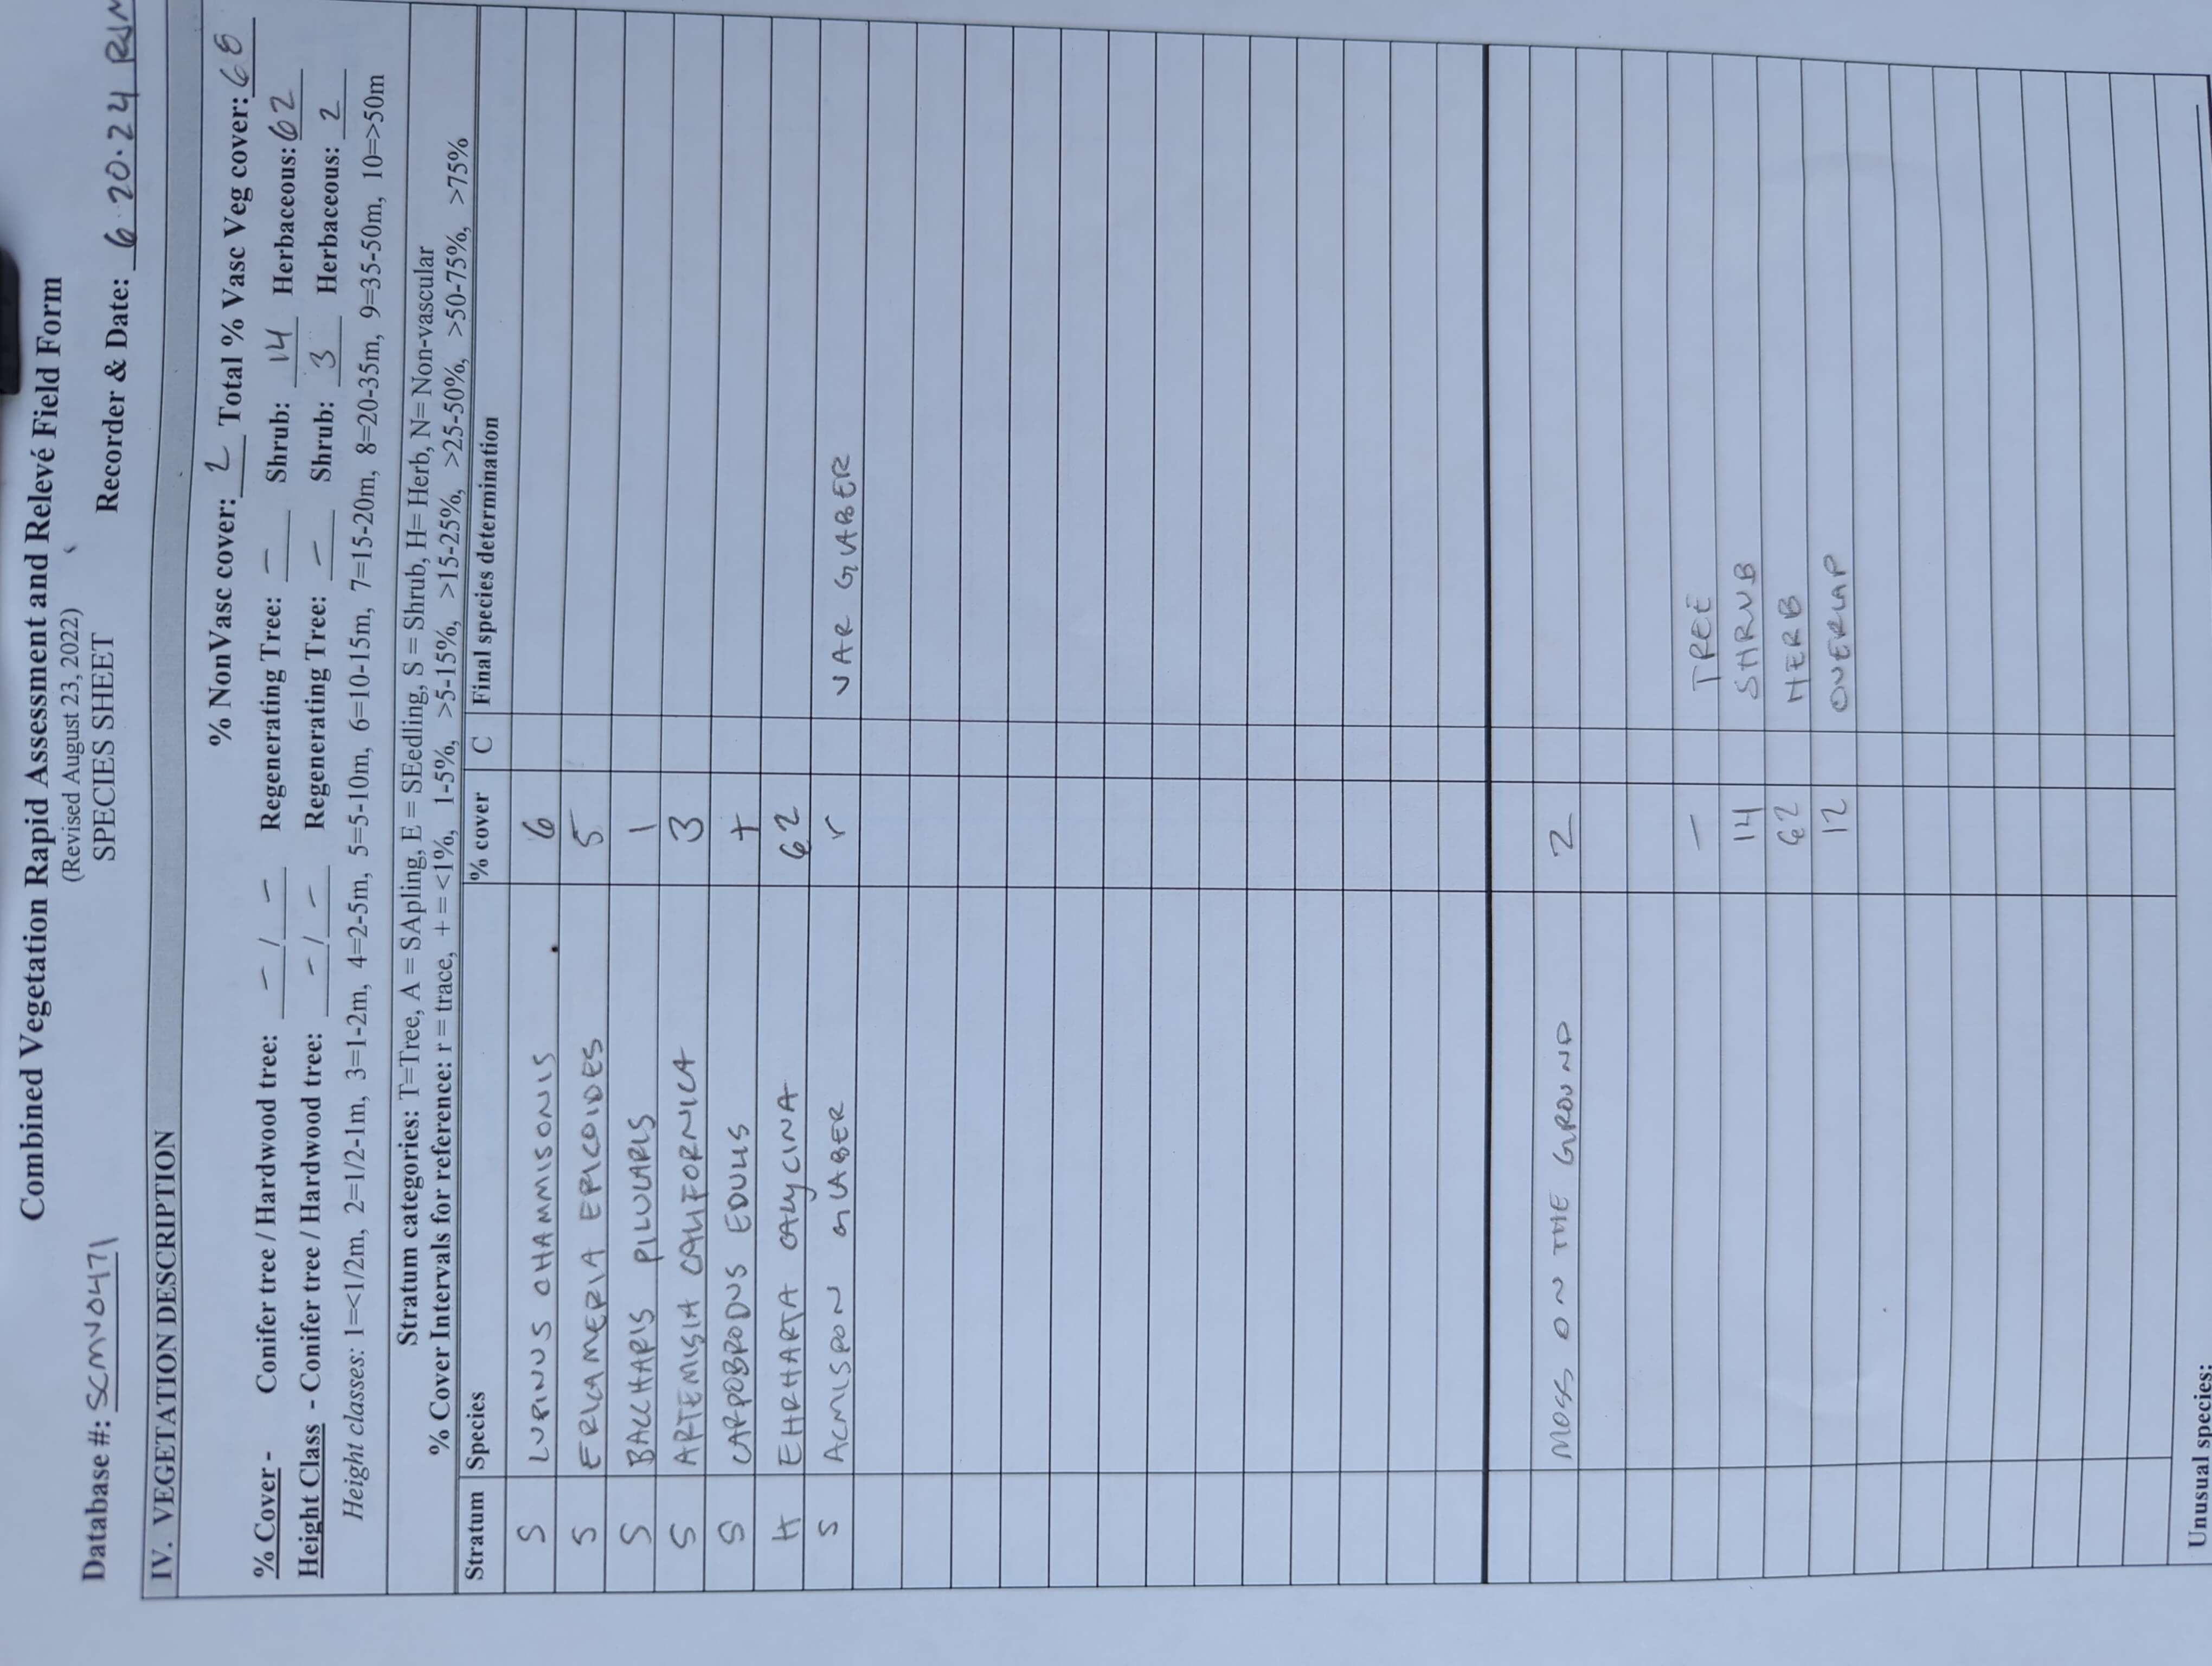 Combined Vegetation Rapid Assessment and Relevé Field Form
(Revised August 23, 2022)
SPECIES SHEET
Database #: SCMV0471 Recorder & Date: 6.20.24 RJM
IV. VEGETATION DESCRIPTION
% NonVasc cover: 2 Total % Vasc Veg cover: 68
% Cover - Conifer tree / Hardwood tree: - / - Regenerating Tree: - Shrub: 14 Herbaceous: 62
Height Class - Conifer tree / Hardwood tree: - / - Regenerating Tree: - Shrub: 3 Herbaceous: 2
Height classes: 1=<1/2m, 2=1/2-1m, 3=1-2m, 4=2-5m, 5=5-10m, 6=10-15m, 7=15-20m, 8=20-35m, 9=35-50m, 10=>50m
Stratum categories: T=Tree, A = SApling, E = SEedling, S = Shrub, H= Herb, N= Non-vascular
% Cover Intervals for reference: r = trace, + = <1%, 1-5%, >5-15%, >15-25%, >25-50%, >50-75%, >75%
Stratum Species % cover C Final species determination
S LUPINUS CHAMMISONIS 6
S ERICAMERIA ERICOIDES 5
S BACCHARIS PILULARIS 1
S ARTEMISIA CALIFORNICA 3
S CARPOBRODUS EDULIS +
H EHRHARTA CALYCINA 62
S ACMISPON GLABER r VAR GLABER
MOSS ON THE GROUND 2
- TREE
14 SHRUB
62 HERB
12 OVERLAP
Unusual species: